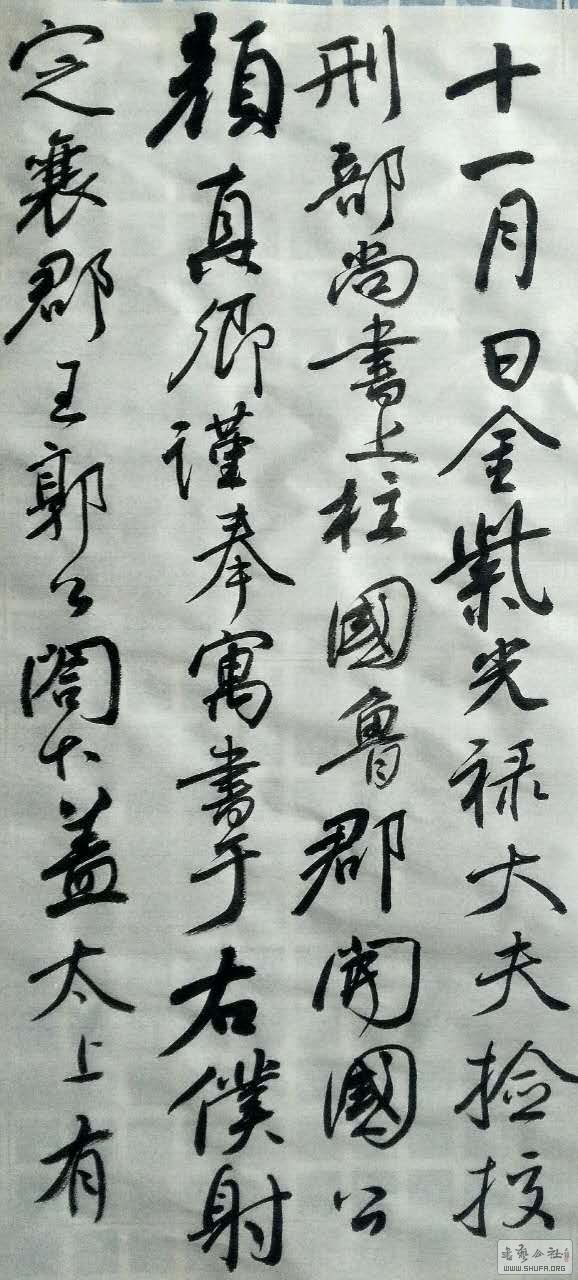 十一月日金紫光禄大夫捡挍
刑部尚書上柱國魯郡開國公
顏真卿謹奉寓書于右僕射
定襄郡王郭公閤下蓋太上有
書藝公社
WWW.SHUFA.ORG